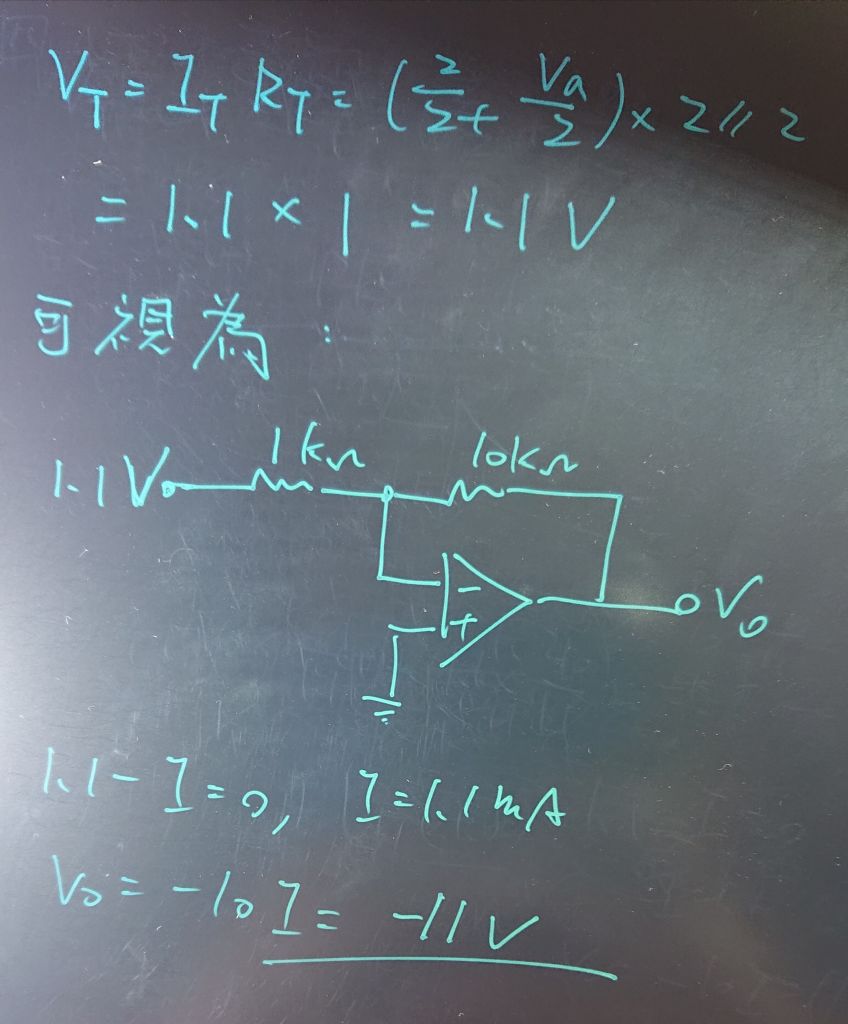 V_T = I_T R_T = (2/2 + Va/2) × 2 // 2
= 1.1 × 1 = 1.1 V
可視為 :
1kΩ 10kΩ
1.1V
−
+
Vo
1.1 - I = 0, I = 1.1 mA
Vo = -10 I = -11 V